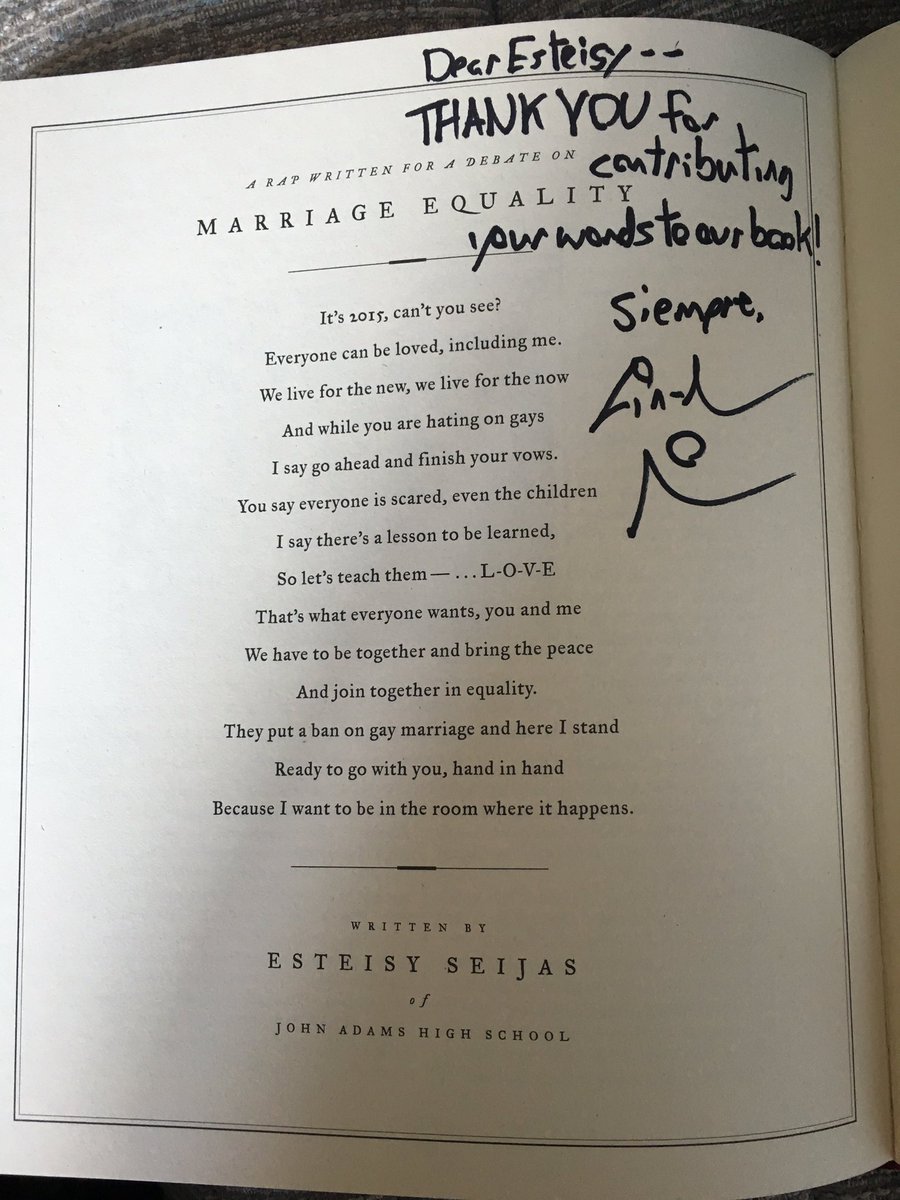 Dear Esteisy--
THANK YOU for
contributing
your words to our book!
Siempre,
A RAP WRITTEN FOR A DEBATE ON
MARRIAGE EQUALITY
It's 2015, can't you see?
Everyone can be loved, including me.
We live for the new, we live for the now
And while you are hating on gays
I say go ahead and finish your vows.
You say everyone is scared, even the children
I say there's a lesson to be learned,
So let's teach them — ... L-O-V-E
That's what everyone wants, you and me
We have to be together and bring the peace
And join together in equality.
They put a ban on gay marriage and here I stand
Ready to go with you, hand in hand
Because I want to be in the room where it happens.
WRITTEN BY
ESTEISY SEIJAS
of
JOHN ADAMS HIGH SCHOOL